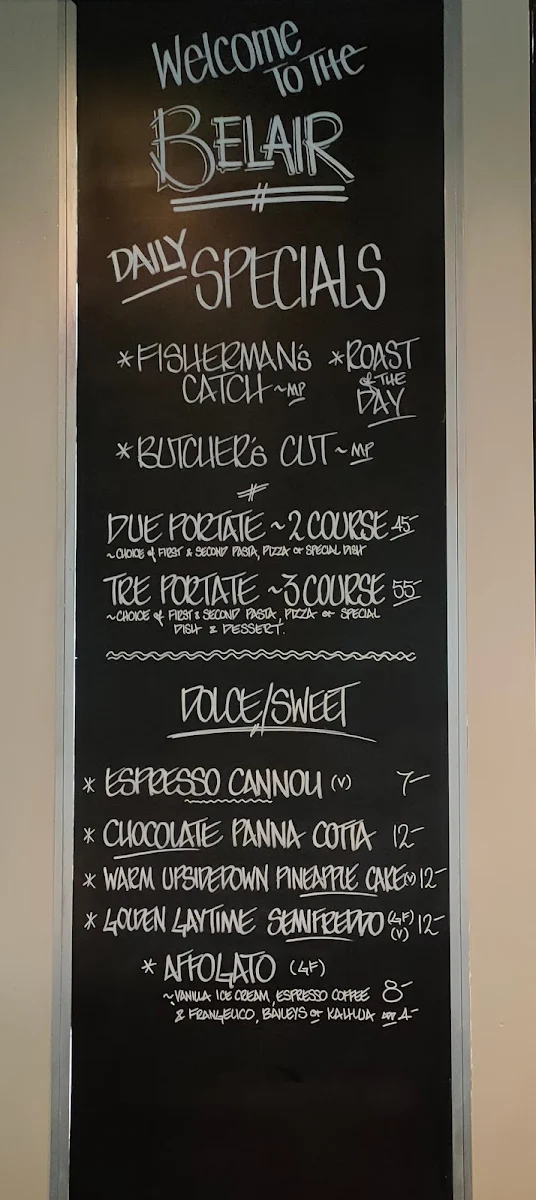 Welcome
To THE
BELAIR
DAILY SPECIALS
* FISHERMAN'S CATCH ~ MP
* ROAST of THE DAY
* BUTCHER'S CUT ~ MP
DUE PORTATE ~ 2 COURSE 45-
~ CHOICE of FIRST & SECOND PASTA, PIZZA or SPECIAL DISH
TRE PORTATE ~ 3 COURSE 55-
~ CHOICE of FIRST & SECOND PASTA, PIZZA or SPECIAL
DISH & DESSERT.
DOLCE/SWEET
* ESPRESSO CANNOLI (V) 7-
* CHOCOLATE PANNA COTTA 12-
* WARM UPSIDEDOWN PINEAPPLE CAKE (V) 12-
* GOLDEN GAYTIME SEMIFREDDO (GF) (V) 12-
* AFFOGATO (GF)
~ VANILLA ICE CREAM, ESPRESSO COFFEE 8-
& FRANGELICO, BAILEYS or KAHLUA ADD 4-